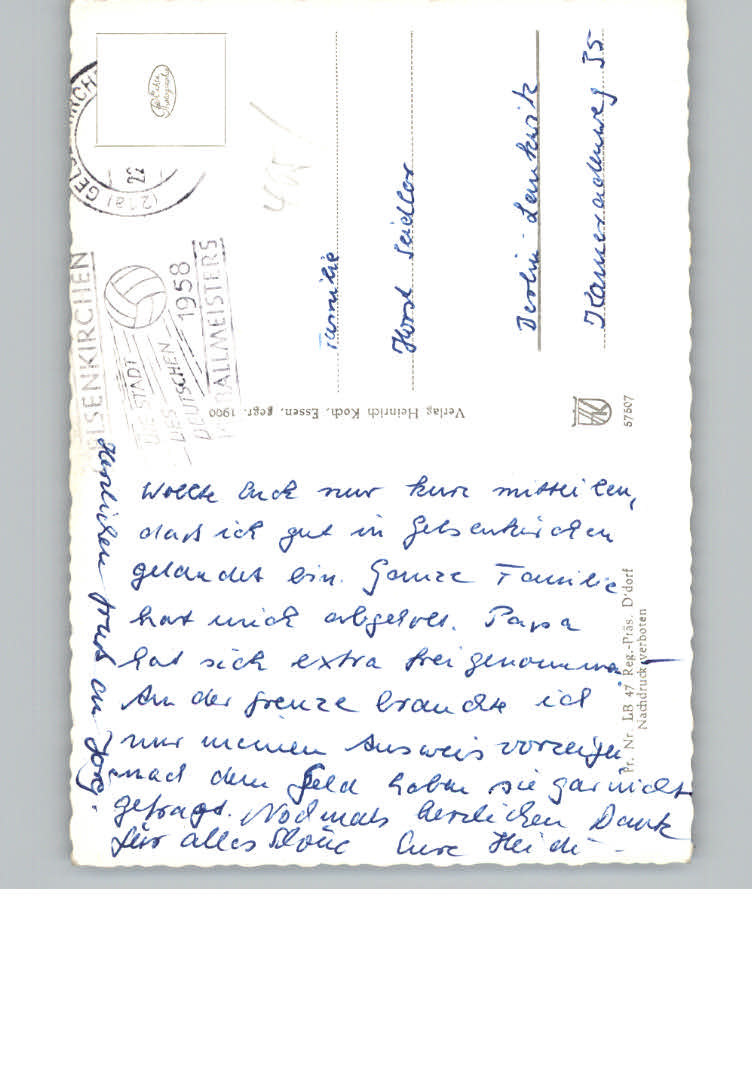 Wollte Euch nur kurz mitteilen,
daß ich gut in Gelsenkirchen
gelandet bin. Ganze Familie
hat mich abgeholt. Papa
hat sich extra frei genommen.
An der Grenze brauchte ich
nur meinen Ausweis vorzeigen
nach dem Geld haben sie gar nicht
gefragt. Nochmals herzlichen Dank
für alles Schöne Eure Heidi
Herzlichen Gruß an Jörg.
Familie
Horst Seidler
Berlin-Lankwitz
Kameradenweg 55
GELSENKIRCHEN
(21a)
22
GELSENKIRCHEN
DIE STADT
DES
DEUTSCHEN
1958
FUSSBALLMEISTERS
Verlag Heinrich Koch, Essen, gegr. 1900
57507
Pr. Nr. LB 47 Reg.-Präs. D'dorf
Nachdruck verboten